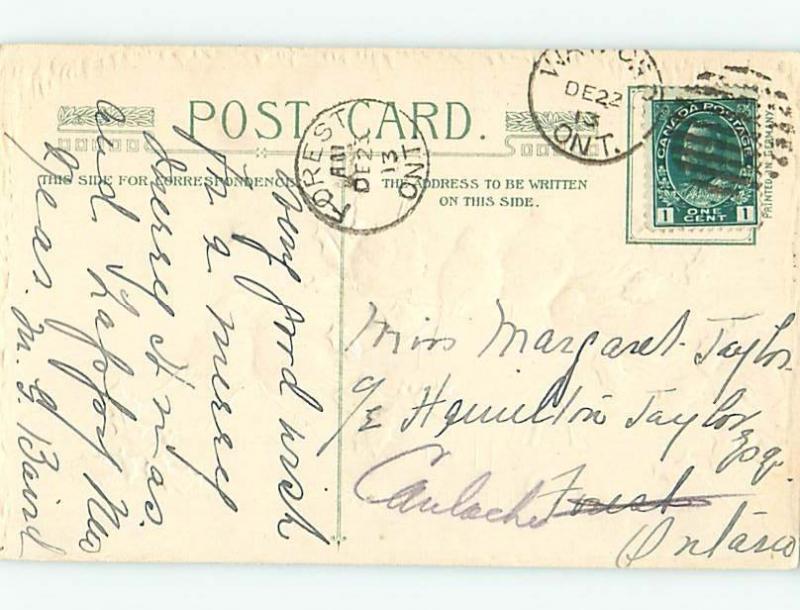 POST CARD.
THIS SIDE FOR CORRESPONDENCE
THE ADDRESS TO BE WRITTEN
ON THIS SIDE.
FOREST
AM
DE 22
13
ONT
DE 22
13
ONT.
CANADA POSTAGE
1 ONE CENT 1
PRINTED IN GERMANY
good wish
for a merry
Xmas.
and Happy New
Year. M. G. Baird
Miss Margaret Taylor
c/o Hamilton Taylor
Esq.
Camlachie Forest
Ontario